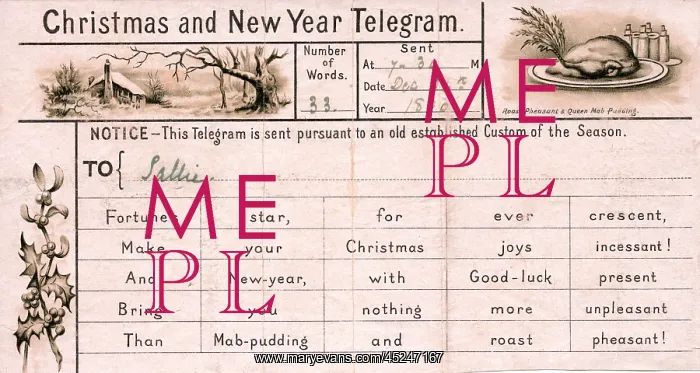 Christmas and New Year Telegram.
Number of Words.
33
Sent
At 7.3 M
Date Dec
Year 18
Roast Pheasant & Queen Mab Pudding.
NOTICE—This Telegram is sent pursuant to an old established Custom of the Season.
TO { Sallie.
Fortune's star, for ever crescent,
Make your Christmas joys incessant!
And New-year, with Good-luck present
Bring you nothing more unpleasant
Than Mab-pudding and roast pheasant!
ME
PL
ME
PL
www.maryevans.com/45247167